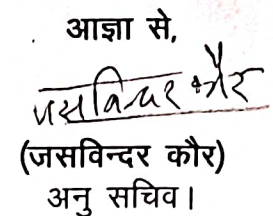 आज्ञा से,
जसविन्दर कौर
(जसविन्दर कौर)
अनु सचिव।